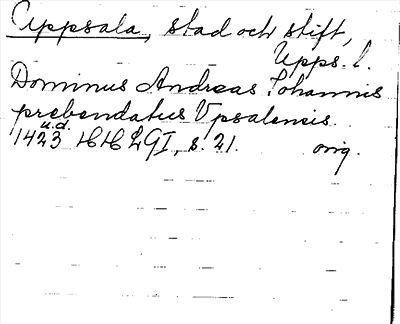 Uppsala, stad och stift,
Upps. l.
Dominus Andreas Iohannis
prebendatus Vpsalensis.
u.d.
1423 HH LGI, s. 21. orig.